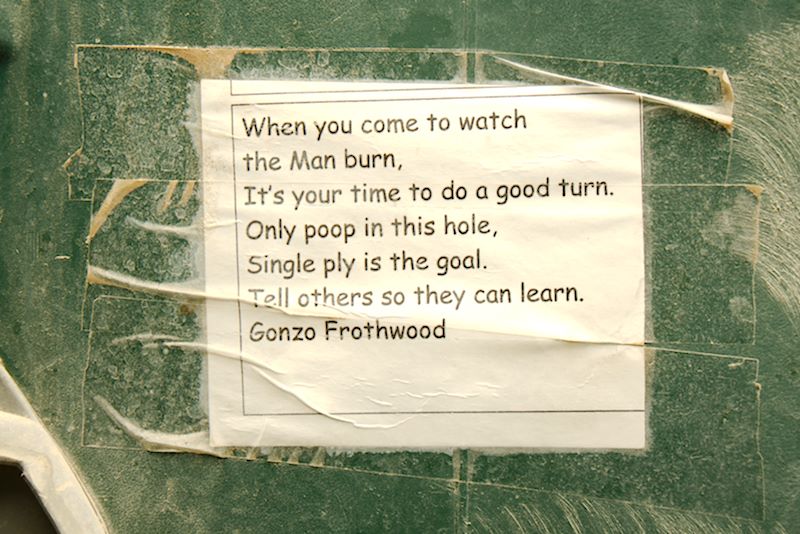 When you come to watch
the Man burn,
It's your time to do a good turn.
Only poop in this hole,
Single ply is the goal.
Tell others so they can learn.
Gonzo Frothwood